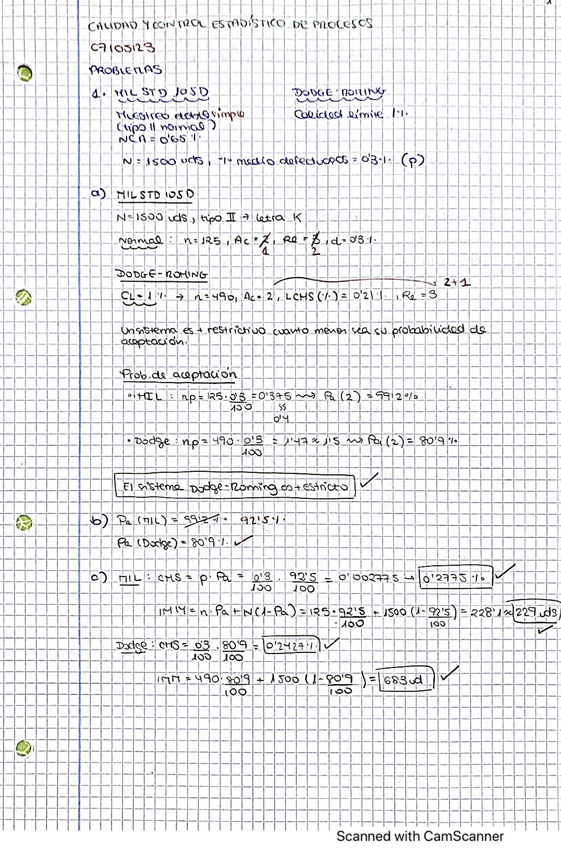 1
CALIDAD Y CONTROL ESTADÍSTICO DE PROCESOS
C7105123
PROBLEMAS
1. MIL STD 105D DODGE-ROMING
Muestreo doble simple Calidad límite 1%
(tipo II normal)
NCA = 0'65%
N = 1500 uds, "%" medio defectuosos = 0'3% (p)
a) MIL STD 105D
N = 1500 uds, tipo II → letra K
Normal: n = 125, Ac = 2, Re = 3, d = 0'3%
1 2
DODGE-ROMING 2+1
CL = 1% → n = 490, Ac = 2, LCMS (%) = 0'21%, Re = 3
Un sistema es + restrictivo cuanto menor sea su probabilidad de
aceptación.
Prob. de aceptación
• MIL: np = 125 · 0'3/100 = 0'375 ⇝ Pa (2) = 99'2%
≈
0'4
• Dodge: np = 490 · 0'3/100 = 1'47 ≈ 1'5 ⇝ Pa (2) = 80'9%
El sistema Dodge-Roming es + estricto ✓
b) Pa (MIL) = 99'2% 92'5%
Pa (Dodge) = 80'9% ✓
c) MIL: CMS = p · Pa = 0'3/100 · 92'5/100 = 0'002775 → 0'2775% ✓
IMM = n · Pa + N (1-Pa) = 125 · 92'5/100 + 1500 (1 - 92'5/100) = 228'1 ≈ 229 uds ✓
Dodge: CMS = 0'3/100 · 80'9/100 = 0'2427% ✓
IMM = 490 · 80'9/100 + 1500 (1 - 80'9/100) = 683 ud ✓
Scanned with CamScanner